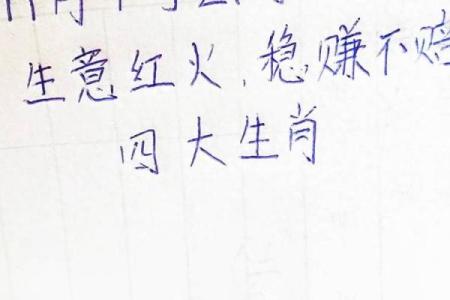 生意红火,稳赚不赔
四大生肖